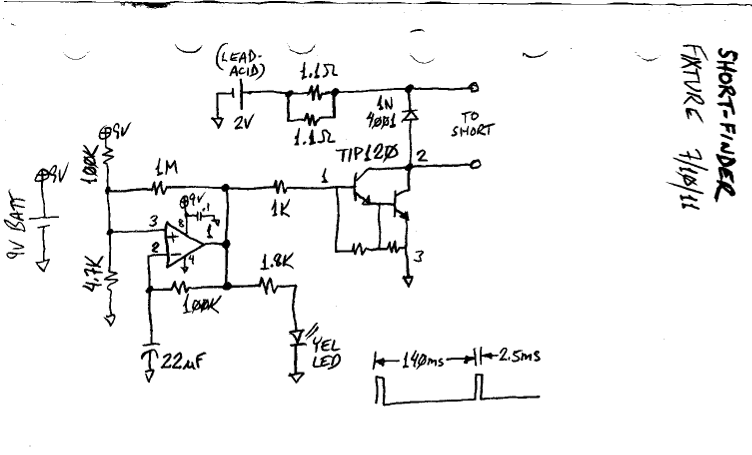 SHORT-FINDER
FIXTURE 7/10/11
(LEAD-
ACID)
2V
1.1Ω
1.1Ω
1N
4001
TO
SHORT
TIP120
2
1
3
⊕9V
100K
1M
1K
⊕9V
9V BATT
⊕9V
.1
8
3
+
1
2
-
4
4.7K
100K
1.8K
22µF
YEL
LED
140ms
2.5ms